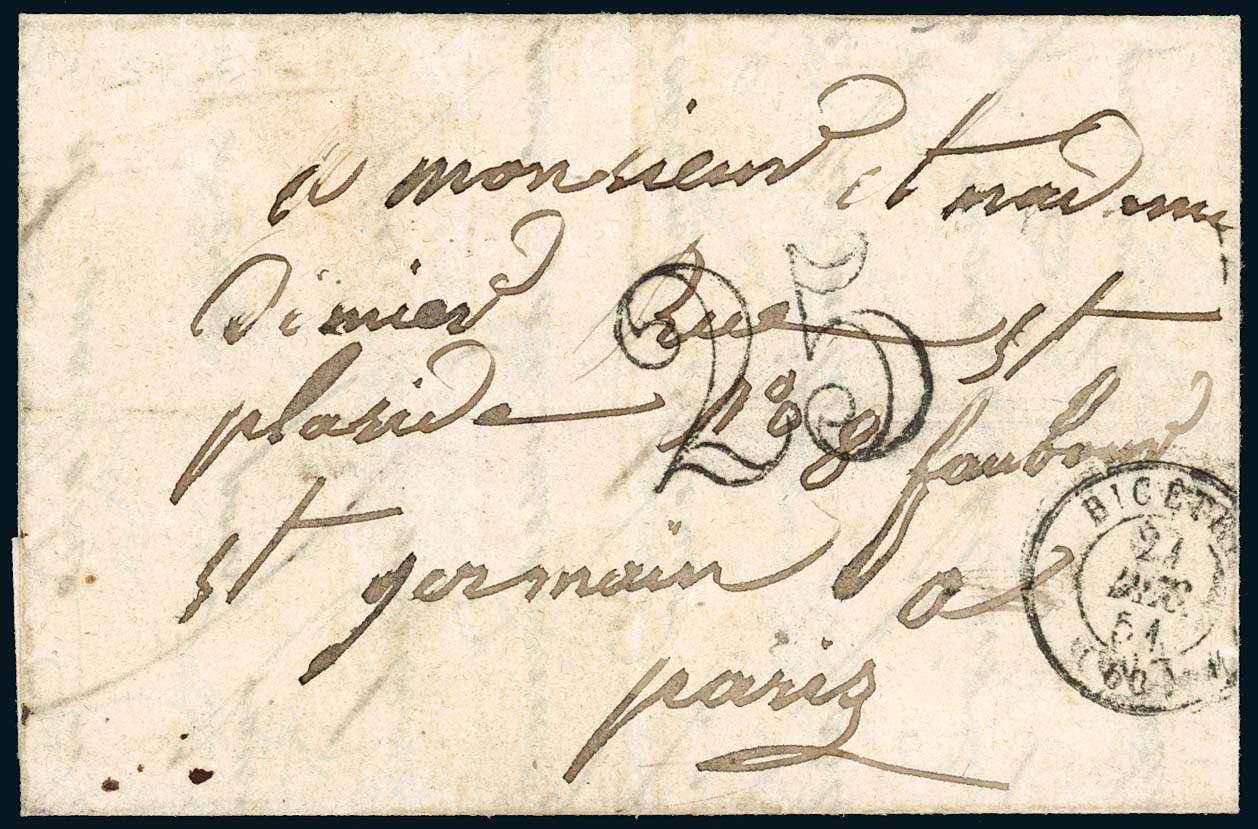 a monsieur et madame
Dimier Rue st
plaside n° 8 faubour
st germain a
paris
25
BICÊTRE
21
DEC.
51